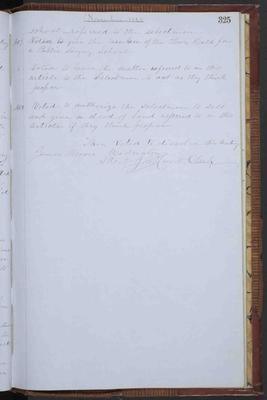 325
school referred to the selectmen
Voted to give the use of the Town Hall for
a Public Singing School
Voted to leave the matter referred to in this
article to the Selectmen to act as they think
proper
Voted to authorize the Selectmen to sell
and give a deed of Land referred to in this
article if they think proper
Then Voted to dissolve the meeting
Moderator
Clerk